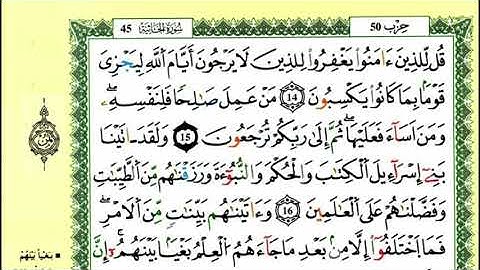 حِزْب 50
سُورَةُ الجَاثِيَة 45
قُل لِّلَّذِينَ ءَامَنُوا۟ يَغْفِرُوا۟ لِلَّذِينَ لَا يَرْجُونَ أَيَّامَ ٱللَّهِ لِيَجْزِىَ
قَوْمَۢا بِمَا كَانُوا۟ يَكْسِبُونَ 14 مَنْ عَمِلَ صَٰلِحًا فَلِنَفْسِهِۦ ۖ
وَمَنْ أَسَآءَ فَعَلَيْهَا ۖ ثُمَّ إِلَىٰ رَبِّكُمْ تُرْجَعُونَ 15 وَلَقَدْ ءَاتَيْنَا
بَنِىٓ إِسْرَٰٓءِيلَ ٱلْكِتَٰبَ وَٱلْحُكْمَ وَٱلنُّبُوَّةَ وَرَزَقْنَٰهُم مِّنَ ٱلطَّيِّبَٰتِ
وَفَضَّلْنَٰهُمْ عَلَى ٱلْعَٰلَمِينَ 16 وَءَاتَيْنَٰهُم بَيِّنَٰتٍ مِّنَ ٱلْأَمْرِ ۖ
فَمَا ٱخْتَلَفُوٓا۟ إِلَّا مِنۢ بَعْدِ مَا جَآءَهُمُ ٱلْعِلْمُ بَغْيًۢا بَيْنَهُمْ ۚ إِنَّ
بَغْيًا بَيْنَهُمْ